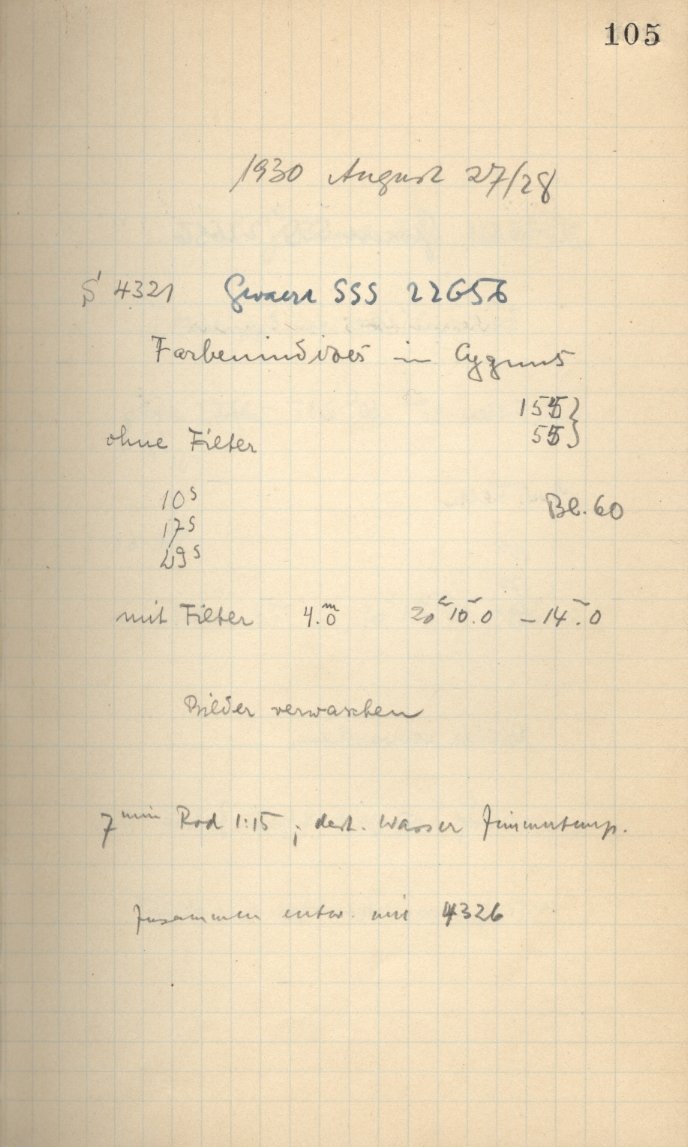 105
1930 August 27/28
S 4321 Gevaert SSS 22656
Farbenindices in Cygnus
155 }
ohne Filter 55 }
10s
Bl. 60
17s
29s
mit Filter 4.m0 20h 10.0 – 14.0
Bilder verwaschen
7 min Rod 1:15 ; dest. Wasser Zimmertemp.
Zusammen entw. mit 4326